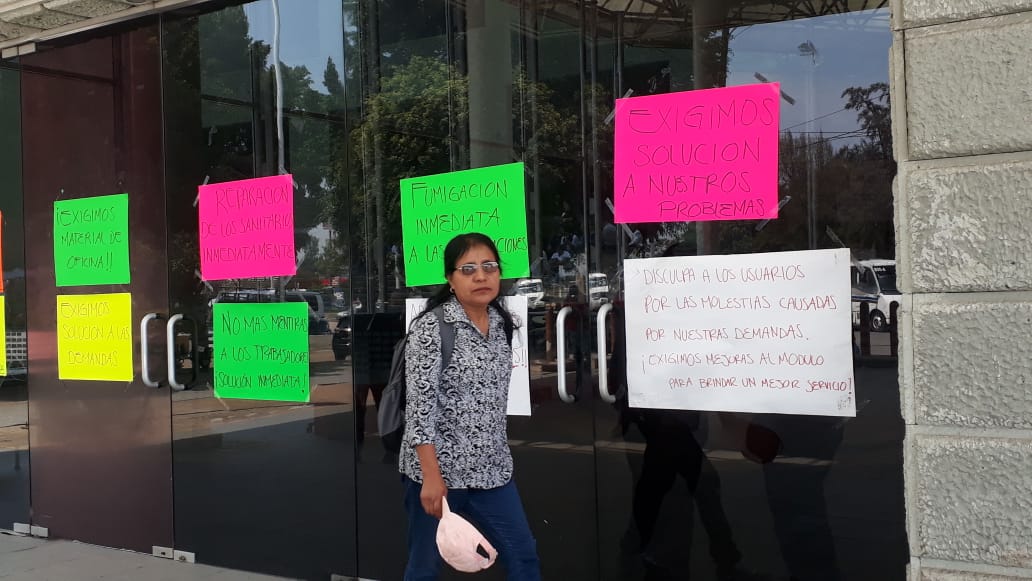 ¡EXIGIMOS
MATERIAL DE
OFICINA!!
EXIGIMOS
SOLUCION A LAS
DEMANDAS
REPARACION
DE LOS SANITARIO
INMEDIATAMENTE
NO MAS MENTIRAS
A LOS TRABAJADORE
¡SOLUCIÓN INMEDIATA!
FUMIGACION
INMEDIATA
A LAS
EXIGIMOS
SOLUCION
A NUSTROS
PROBLEMAS
DISCULPA A LOS USUARIOS
POR LAS MOLESTIAS CAUSADAS
POR NUESTRAS DEMANDAS.
¡EXIGIMOS MEJORAS AL MODULO
PARA BRINDAR UN MEJOR SERVICIO!